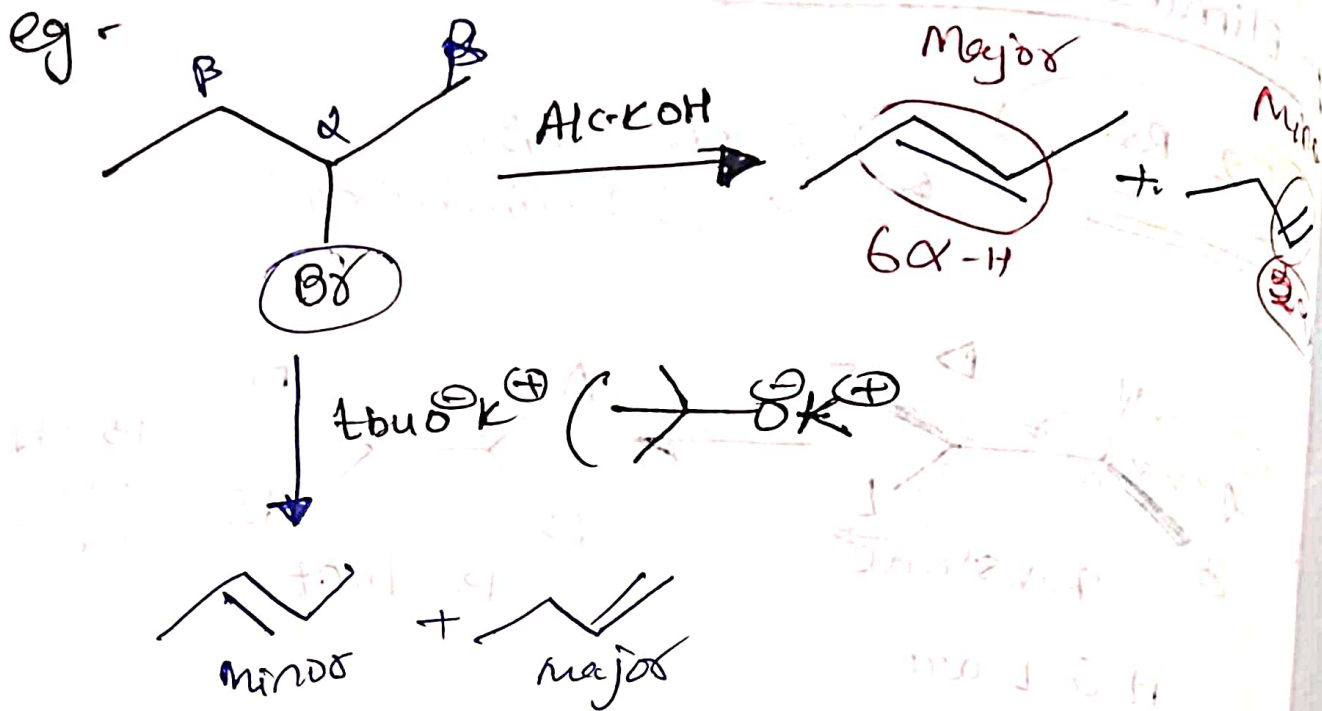 eg.
β
α
β
Br
Alc.KOH
Major
6α-H
+
tBuO⊖K⊕ (
O⊖K⊕
minor
+
major